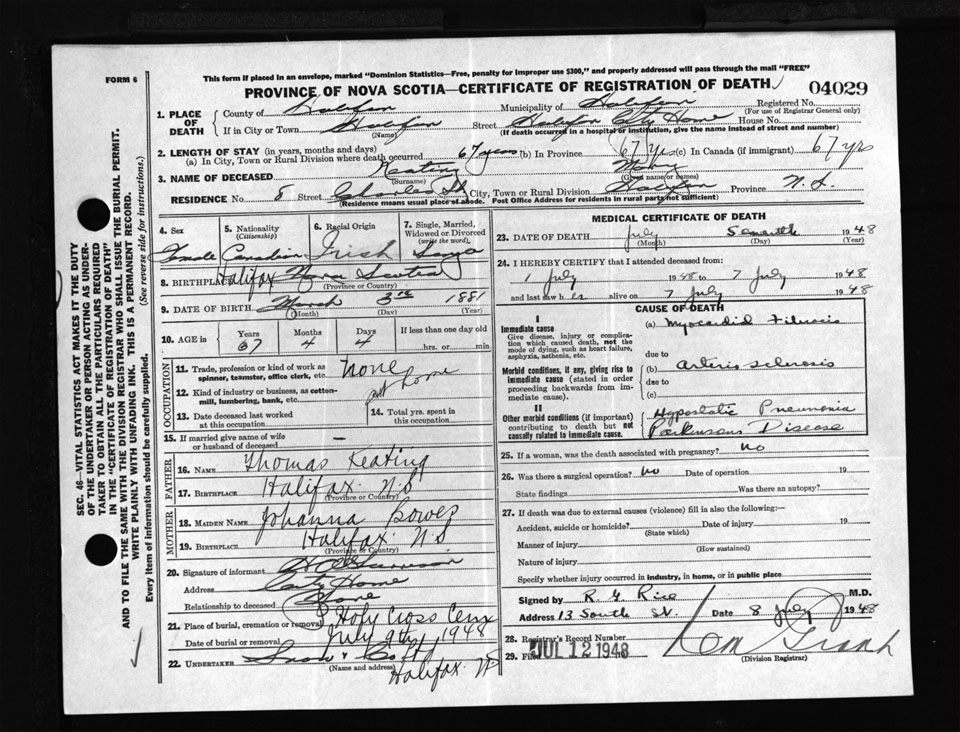 FORM 6
This form if placed in an envelope, marked "Dominion Statistics—Free, penalty for improper use $300," and properly addressed will pass through the mail "FREE"
PROVINCE OF NOVA SCOTIA—CERTIFICATE OF REGISTRATION OF DEATH
04029
1. PLACE OF DEATH
County of Halifax Municipality of Halifax Registered No.
(For use of Registrar General only)
If in City or Town Halifax Street Halifax City Home House No.
(Name) (If death occurred in a hospital or institution, give the name instead of street and number)
2. LENGTH OF STAY (in years, months and days)
(a) In City, Town or Rural Division where death occurred 67 years (b) In Province 67 Yrs (c) In Canada (if immigrant) 67 yrs
3. NAME OF DECEASED Keating Mary
(Surname) (Given name or names)
RESIDENCE No. 8 Street Charles St City, Town or Rural Division Halifax Province N.S.
(Residence means usual place of abode. Post Office Address for residents in rural parts not sufficient)
4. Sex
Female
5. Nationality (Citizenship)
Canadian
6. Racial Origin
Irish
7. Single, Married, Widowed or Divorced (write the word)
8. BIRTHPLACE Halifax Nova Scotia
(Province or Country)
9. DATE OF BIRTH March 3rd 1881
(Month) (Day) (Year)
10. AGE in Years Months Days If less than one day old
67 4 4 hrs. or min.
OCCUPATION
11. Trade, profession or kind of work as spinner, teamster, office clerk, etc. none
12. Kind of industry or business, as cotton-mill, lumbering, bank, etc. at home
13. Date deceased last worked at this occupation
14. Total yrs. spent in this occupation
15. If married give name of wife or husband of deceased —
FATHER
16. NAME Thomas Keating
17. BIRTHPLACE Halifax N.S
(Province or Country)
MOTHER
18. MAIDEN NAME Johanna Bowes
19. BIRTHPLACE Halifax N.S
(Province or Country)
20. Signature of informant
Address City Home
Relationship to deceased None
21. Place of burial, cremation or removal Holy Cross Cem
Date of burial or removal July 9th 1948
22. UNDERTAKER Snow & Co
(Name and address)
Halifax NS
MEDICAL CERTIFICATE OF DEATH
23. DATE OF DEATH July 1948
(Month) (Day) (Year)
24. I HEREBY CERTIFY that I attended deceased from:
1 July 1948 to 7 July 1948
and last saw her alive on 7 July 1948
CAUSE OF DEATH
I
Immediate cause
Give disease, injury or complication which caused death, not the mode of dying, such as heart failure, asphyxia, asthenia, etc.
(a) Myocardial Fibrosis
due to
Morbid conditions, if any, giving rise to immediate cause (stated in order proceeding backwards from immediate cause).
(b) arterio sclerosis
due to
(c)
II
Other morbid conditions (if important) contributing to death but not causally related to immediate cause.
Hypostatic Pneumonia
Parkinsons Disease
25. If a woman, was the death associated with pregnancy? No
26. Was there a surgical operation? No Date of operation 19
State findings Was there an autopsy?
27. If death was due to external causes (violence) fill in also the following:—
Accident, suicide or homicide? Date of injury 19
(State which)
Manner of injury
(How sustained)
Nature of injury
Specify whether injury occurred in industry, in home, or in public place
Signed by R. G. Rice M.D.
Address 13 South St. Date 8 July 1948
28. Registrar's Record Number
29. Filed JUL 12 1948
(Division Registrar)
SEC. 46—VITAL STATISTICS ACT MAKES IT THE DUTY
OF THE UNDERTAKER OR PERSON ACTING AS UNDER-
TAKER TO OBTAIN ALL THE PARTICULARS REQUIRED
IN THE "CERTIFICATE OF REGISTRATION OF DEATH"
AND TO FILE THE SAME WITH THE DIVISION REGISTRAR WHO SHALL ISSUE THE BURIAL PERMIT.
WRITE PLAINLY WITH UNFADING INK. THIS IS A PERMANENT RECORD.
Every item of information should be carefully supplied. (See reverse side for instructions.)